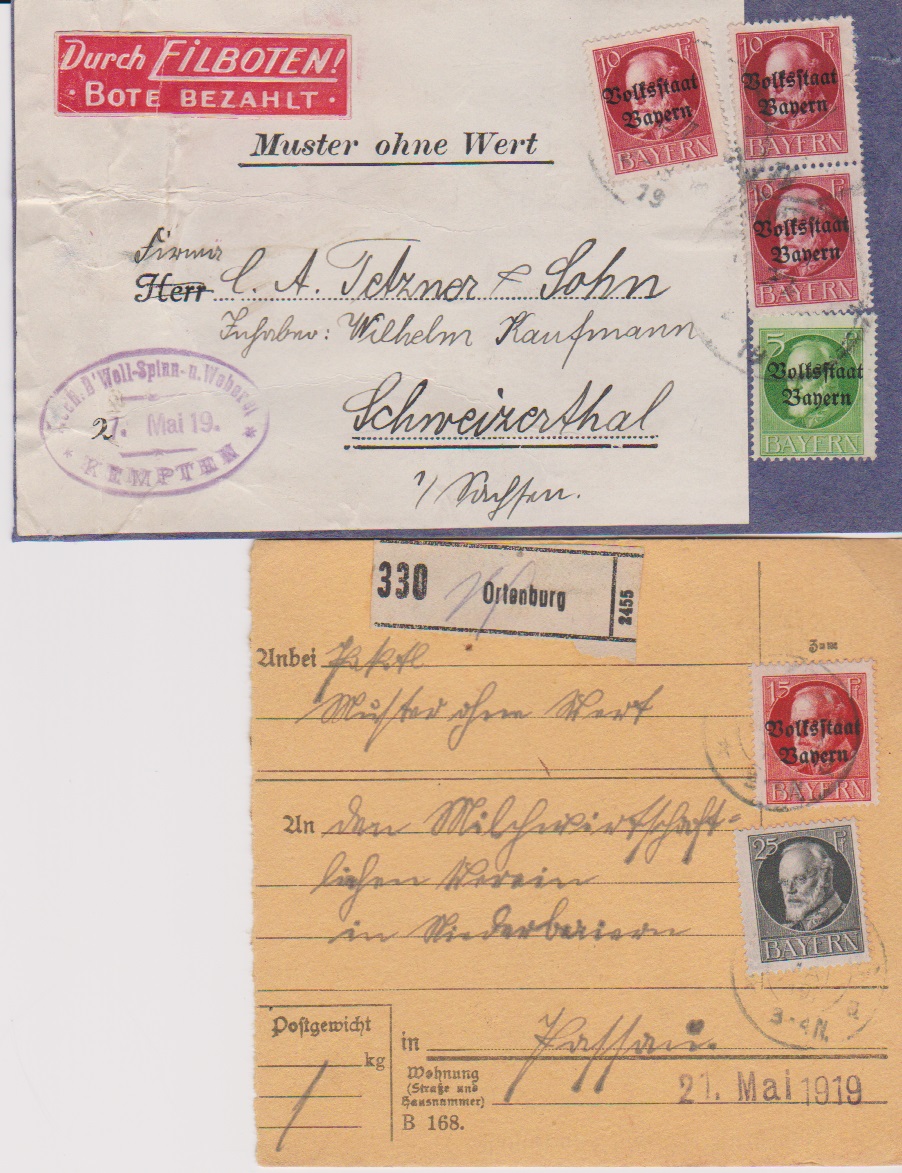 Durch EILBOTEN!
· BOTE BEZAHLT ·
Muster ohne Wert
10 Pf
Volksstaat
Bayern
BAYERN
10
Volksstaat
Bayern
BAYERN
10
Volksstaat
Bayern
BAYERN
5
Volksstaat
Bayern
BAYERN
19
Firma
Herr C. A. Tetzner & Sohn
Inhaber: Wilhelm Kaufmann
Schweizerthal
i/ Sachsen.
Mech. B'Woll-Spinn- u. Weberei
7. Mai 19.
* KEMPTEN *
330 Ortenburg 2455
Anbei
Muster ohne Wert
15 Pf
Volksstaat
Bayern
BAYERN
An den Milchwirtschaft-
lichen Verein
in Niederbaiern
25 Pf
BAYERN
3-4N.
Postgewicht
1 kg
in Passau.
Wohnung
(Straße und
Hausnummer)
B 168.
21. Mai 1919